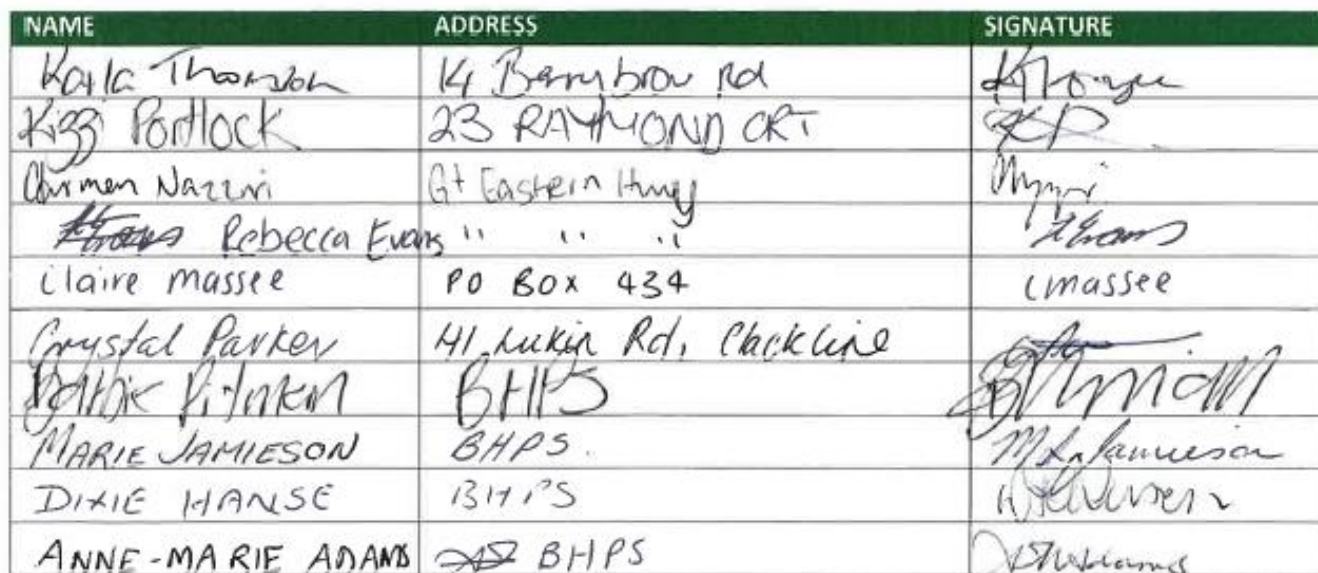 NAME ADDRESS SIGNATURE
Karla Thomson 14 Berrybrow Rd
Kizzi Portlock 23 RAYMOND CRT KP
Carmen Nazzari Gt Eastern Hwy
Rebecca Evans " " " REvans
Claire massee PO BOX 434 cmassee
Crystal Parker 41 Lukin Rd, Clackline
BHPS
MARIE JAMIESON BHPS. M L Jamieson
DIXIE HANSE BHPS
ANNE-MARIE ADAMS BHPS